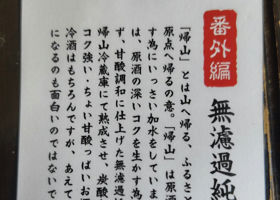 番外編
無濾過純
「帰山」とは山へ帰る、ふるさと
原点へ帰るの意。「帰山」は原酒
す為にいっさい加水をしていま
は、原酒の深いコクを生かす為
ず、甘酸調和に仕上げた無濾過純
帰山冷蔵庫にて熟成させ、炭酸
コク強い・ちょい甘酸っぱいお酒
冷酒はもちろんですが、あえて
になるのも面白いのではないで